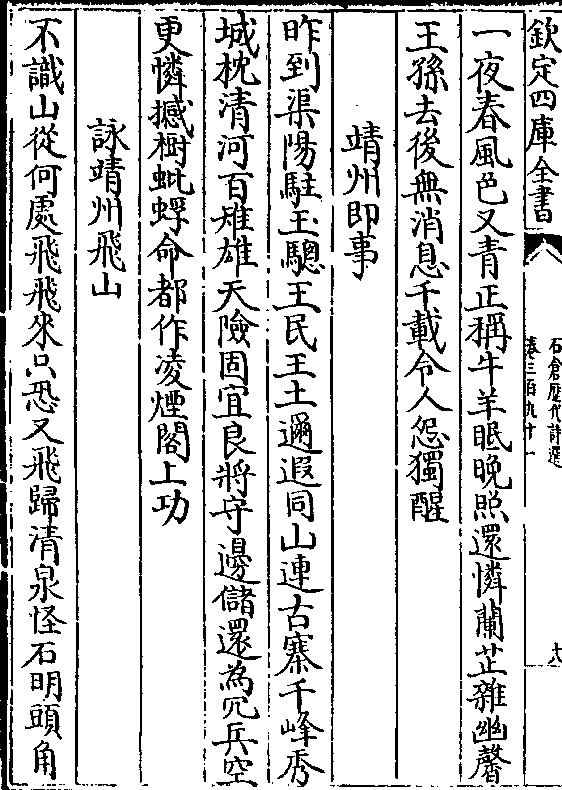 欽定四庫全書
石倉歷代詩選
卷三百九十一
十八
一夜春風色又青正稱牛羊眠晚照還憐蘭芷雜幽馨
王孫去後無消息千載令人怨獨醒
靖州即事
昨到渠陽駐玉驄王民王土邇遐同山連古寨千峰秀
城枕清河百雉雄天險固宜良將守邊儲還為冗兵空
更憐撼樹蚍蜉命都作凌煙閣上功
詠靖州飛山
不識山從何處飛飛來只恐又飛歸清泉怪石明頭角